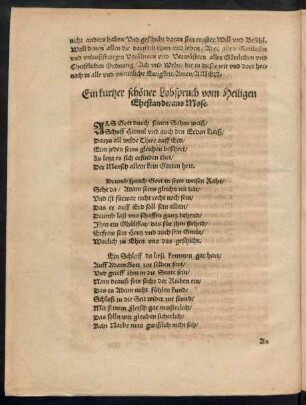 nicht anders haben / Und geschicht daran sein ernster Will und Befehl.
Woll denen allen die darnach thun und leben / Aber allen Gottlosen
und unkeuschen
vnd Christlichen Ordnung / Ach und Wehe / hie in dieser zeit und dort her-
nach in alle und unendliche Ewigkeit / Amen / AMEN.
Ein kurtzer schöner Lobspruch vom Heiligen
Ehestande aus Mose.
ALS Gott durch seinen Sohn weiß /
Schoff Himmel und auch den Erden kreiß /
Darzu all wilde Thier auff Erd /
Eim jeden seins gleichen beschert /
Zu letzt es sich befinden thet /
Der Mensch allein kein Gatten hett.
Darumb sprach Gott in seim weisen Raht /
Seht da / Adam seins gleichs nit hat /
Und ist fürwar nicht recht noch fein /
Das er auff Erd soll sein allein /
Darumb last uns schaffen gantz behend /
Ihm ein Ghülffin / das für ihm stehend /
Erfrew sein Hertz und auch sein Gmüt /
Warlich zu Ehrn uns das geschicht.
Ein Schlaff da liess kommen gar
Auff Adam Gott zur selben
Und greiff ihm in die Seite sein /
Nam drauß sein sacht der Rieben ein /
Das es Adam nicht fühlen kund /
Schloß zu die Seit wider zur stund /
Mit seinem Fleisch gar meisterlich /
Das solln wir glauben sicherlich /
Kein Narbe man gewißlich nicht sah /
An